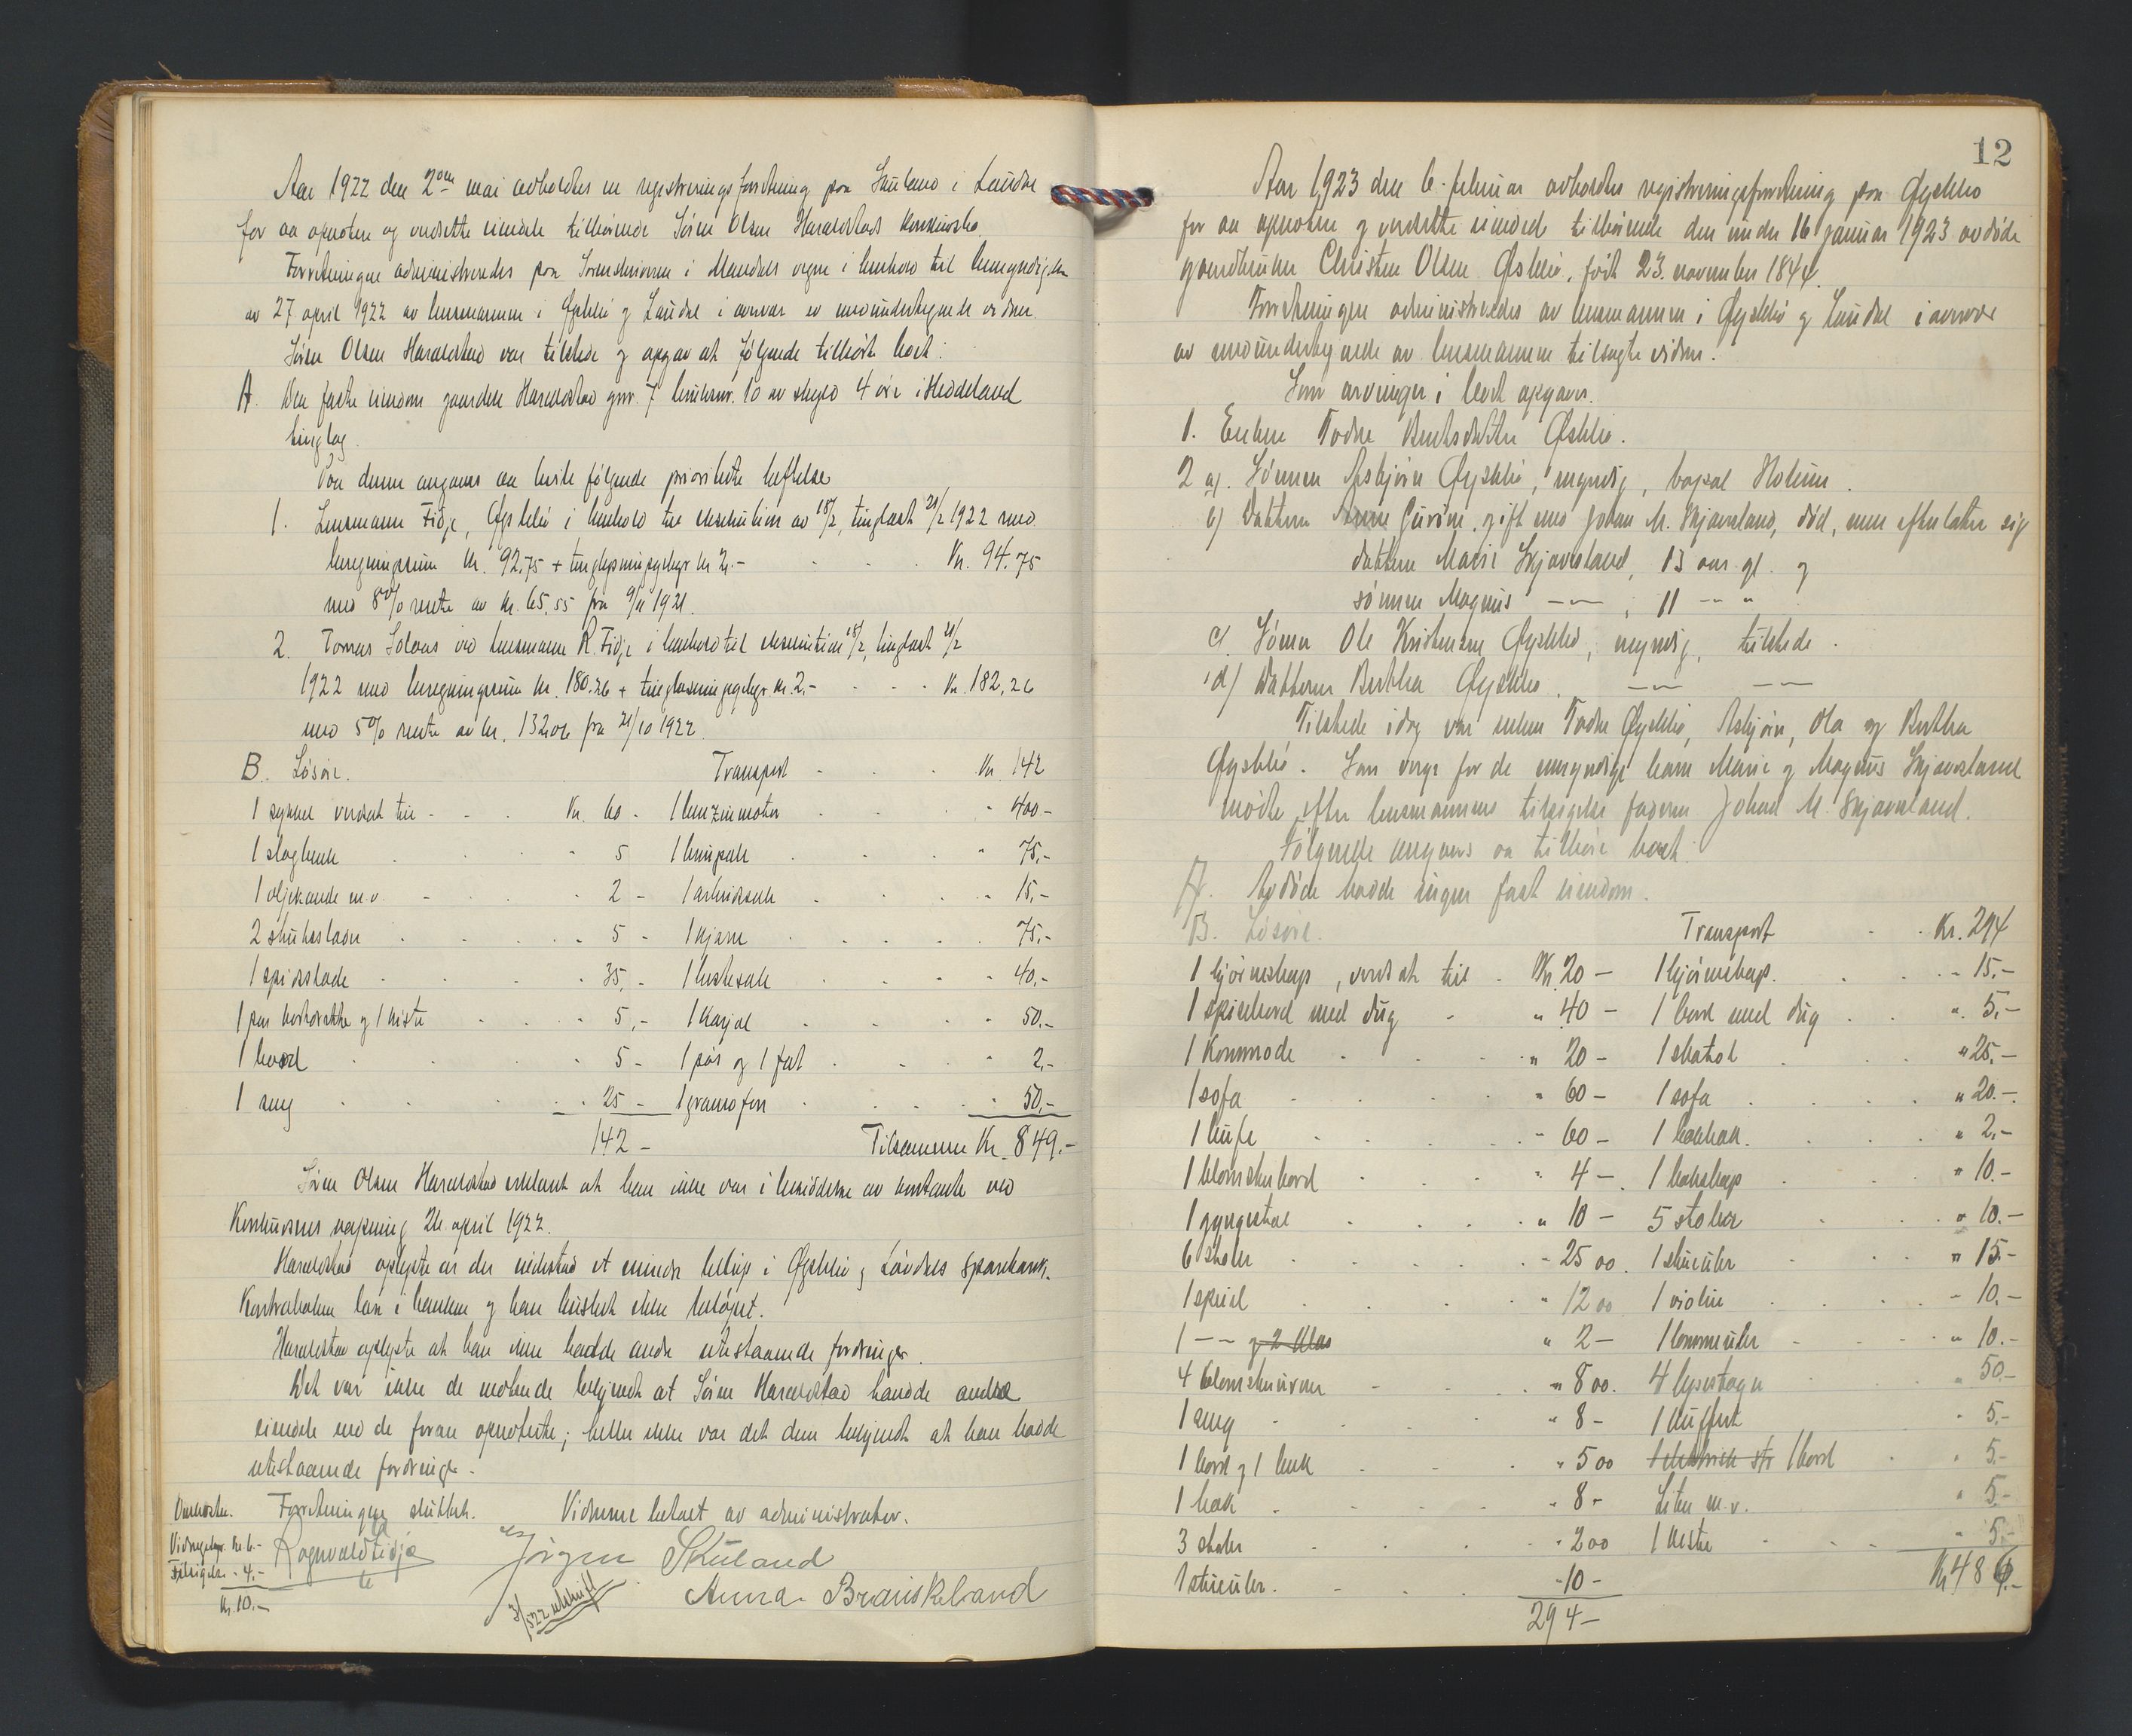 Aar 1922 den 2den mai avholdtes en registreringsforretning paa Skuland i Laudal
for aa opnotere og verdsette eiendele tilhørende Sören Olsen Haraldstads konkursbo.
Forretningen administreredes paa Sorenskriveren i Mandals vegne i henhold til bemyndigelse
av 27 april 1922 av lensmannen i Øyslebö og Laudal i nærvær av medundertegnede vidner.
Sören Olsen Haraldstad var tilstede og opgav at følgende tilhörte boet:
A. Den faste eiendom gaarden Haraldstad gnr. 7 bruksnr. 10 av skyld 4 öre i Heddeland
tinglag.
Paa denne angaves aa hvile følgende prioriterte heftelser
1. Lensmann Fidje, Øyslebö i henhold til eksekution av 18/2, tinglæst 21/2 1922 med
beregningssum kr. 92.75 + tinglysningsgebyr kr 2.- Kr. 94.75
med 8% rente av kr. 65,55 fra 9/11 1921.
2. Tomas Solaas ved lensmann R. Fidje i henhold til eksekution 18/2, tinglæst 21/2
1922 med beregningssum kr. 180.26 + tinglæsningsgebyr kr. 2.- Kr. 182,26
med 5% rente av kr. 132.06 fra 21/10 1922.
B. Lösöre. Transport Kr. 142
1 sykkel verdsat til Kr. 60 - 1 benzinmotor " 400 -
1 slagbenk " 5 1 " 75.-
1 oljekande m.v. 2 - 1 arbeidssele " 15,-
2 stubsleder " 5 - 1 kjærre 75.-
1 spidsslæde 35,- 1 hestesele " 40,-
1 par og 1 kiste " 5,- 1 karjol " 50.-
1 bord " 5 - 1 pös og 1 fat " 2,-
1 seng " 25 - 1 gramofon " 50,-
142 - Tilsammen Kr. 849.-
Sören Olsen Haraldstad erklærte at han ikke var i besiddelse av kontanter ved
Konkursens aapning 26 april 1922.
Haraldstad oplyste at der indestod et mindre beløp i Øyslebö og Laudals Sparebank.
Kontraboken laa i banken og han husket ikke beløpet.
Haraldstad oplyste at han ikke hadde andre utestaaende fordringer.
Det var ikke de mötende bekjendt at Sören Haraldstad havde andre
eiendele end de foran opnoterte; heller ikke var det dem bekjendt at han hadde
utestaaende fordringer.
Omkostn. Forretningen sluttet. Vidnene betalt av administrator.
Vidnegebyr Kr. 6.- Ragnvald Fidje Jörgen Skuland
Tilsigelse " 4.- Anna Brauskeland
Kr. 10.- 3/5 22 utskrift
12
Aar 1923 den 6. februar avholdtes registreringsforretning paa Øyslebö
for aa opnotere og verdsette eiendele tilhörende den under 16 januar 1923 avdöde
gaardbruker Christen Olsen Øslebö, født 23. november 1844.
Forretningen administreredes av lensmannen i Øyslebö og Laudal i nærvær
av medundertegnede av lensmannen tilsagte vidner.
Som arvinger i boet opgaves.
1. Enken Todne Berntsdatter Øslebö.
2 a). Sönnen Asbjörn Øyslebö, myndig, bopæl Holum.
b) Datteren Anne Gurine, gift med Johan M. Skjævesland, död, men efterlater sig
datteren Marie Skjævesland, 13 aar gl. og
sönnen Magnus —"— , 11 —" "
c). Sönnen Ole Kristensen Øyslebö, myndig, tilstede.
d) Datteren Bertha Øyslebö. —"— —"—
Tilstede idag var enken Todne Øyslebö, Asbjörn, Ola og Bertha
Øyslebö. Som verge for de umyndige barn Marie og Magnus Skjævesland
mödte efter lensmannens tilsigelse faderen Johan M. Skjævesland.
Følgende angaves aa tilhøre boet:
A. Avdöde hadde ingen fast eiendom.
B. Lösöre. Transport Kr. 294
1 hjörneskap, verdsat til Kr. 20 - 1 hjörneskap. " 15.-
1 spisebord med dug " 40 - 1 bord med dug " 5.-
1 Kommode " 20 - 1 chatol " 25.-
1 sofa " 60 - 1 sofa " 20.-
1 buffe " 60 - 1 " 2,-
1 blomsterbord " 4 - 1 bokskap " 10.-
1 gyngestol " 10 - 5 stoler " 10.-
6 stoler " 25 00. 1 stueuhr " 15.-
1 speil " 12 00 1 violin " 10.-
1 —"— og 2 " 2 - 1 lommeuhr " 10.-
4 blomsterurner " 8 00. 4 lysestager " 50.-
1 seng " 8 - 1 kuffert " 5.-
1 bord og 1 benk " 5 00 1 bord " 5.-
1 " 8 - m.v. " 5.-
3 stoler " 2 00 1 kiste " 5.-
1 stueuhr. - 10 - Kr 486.-
294 -